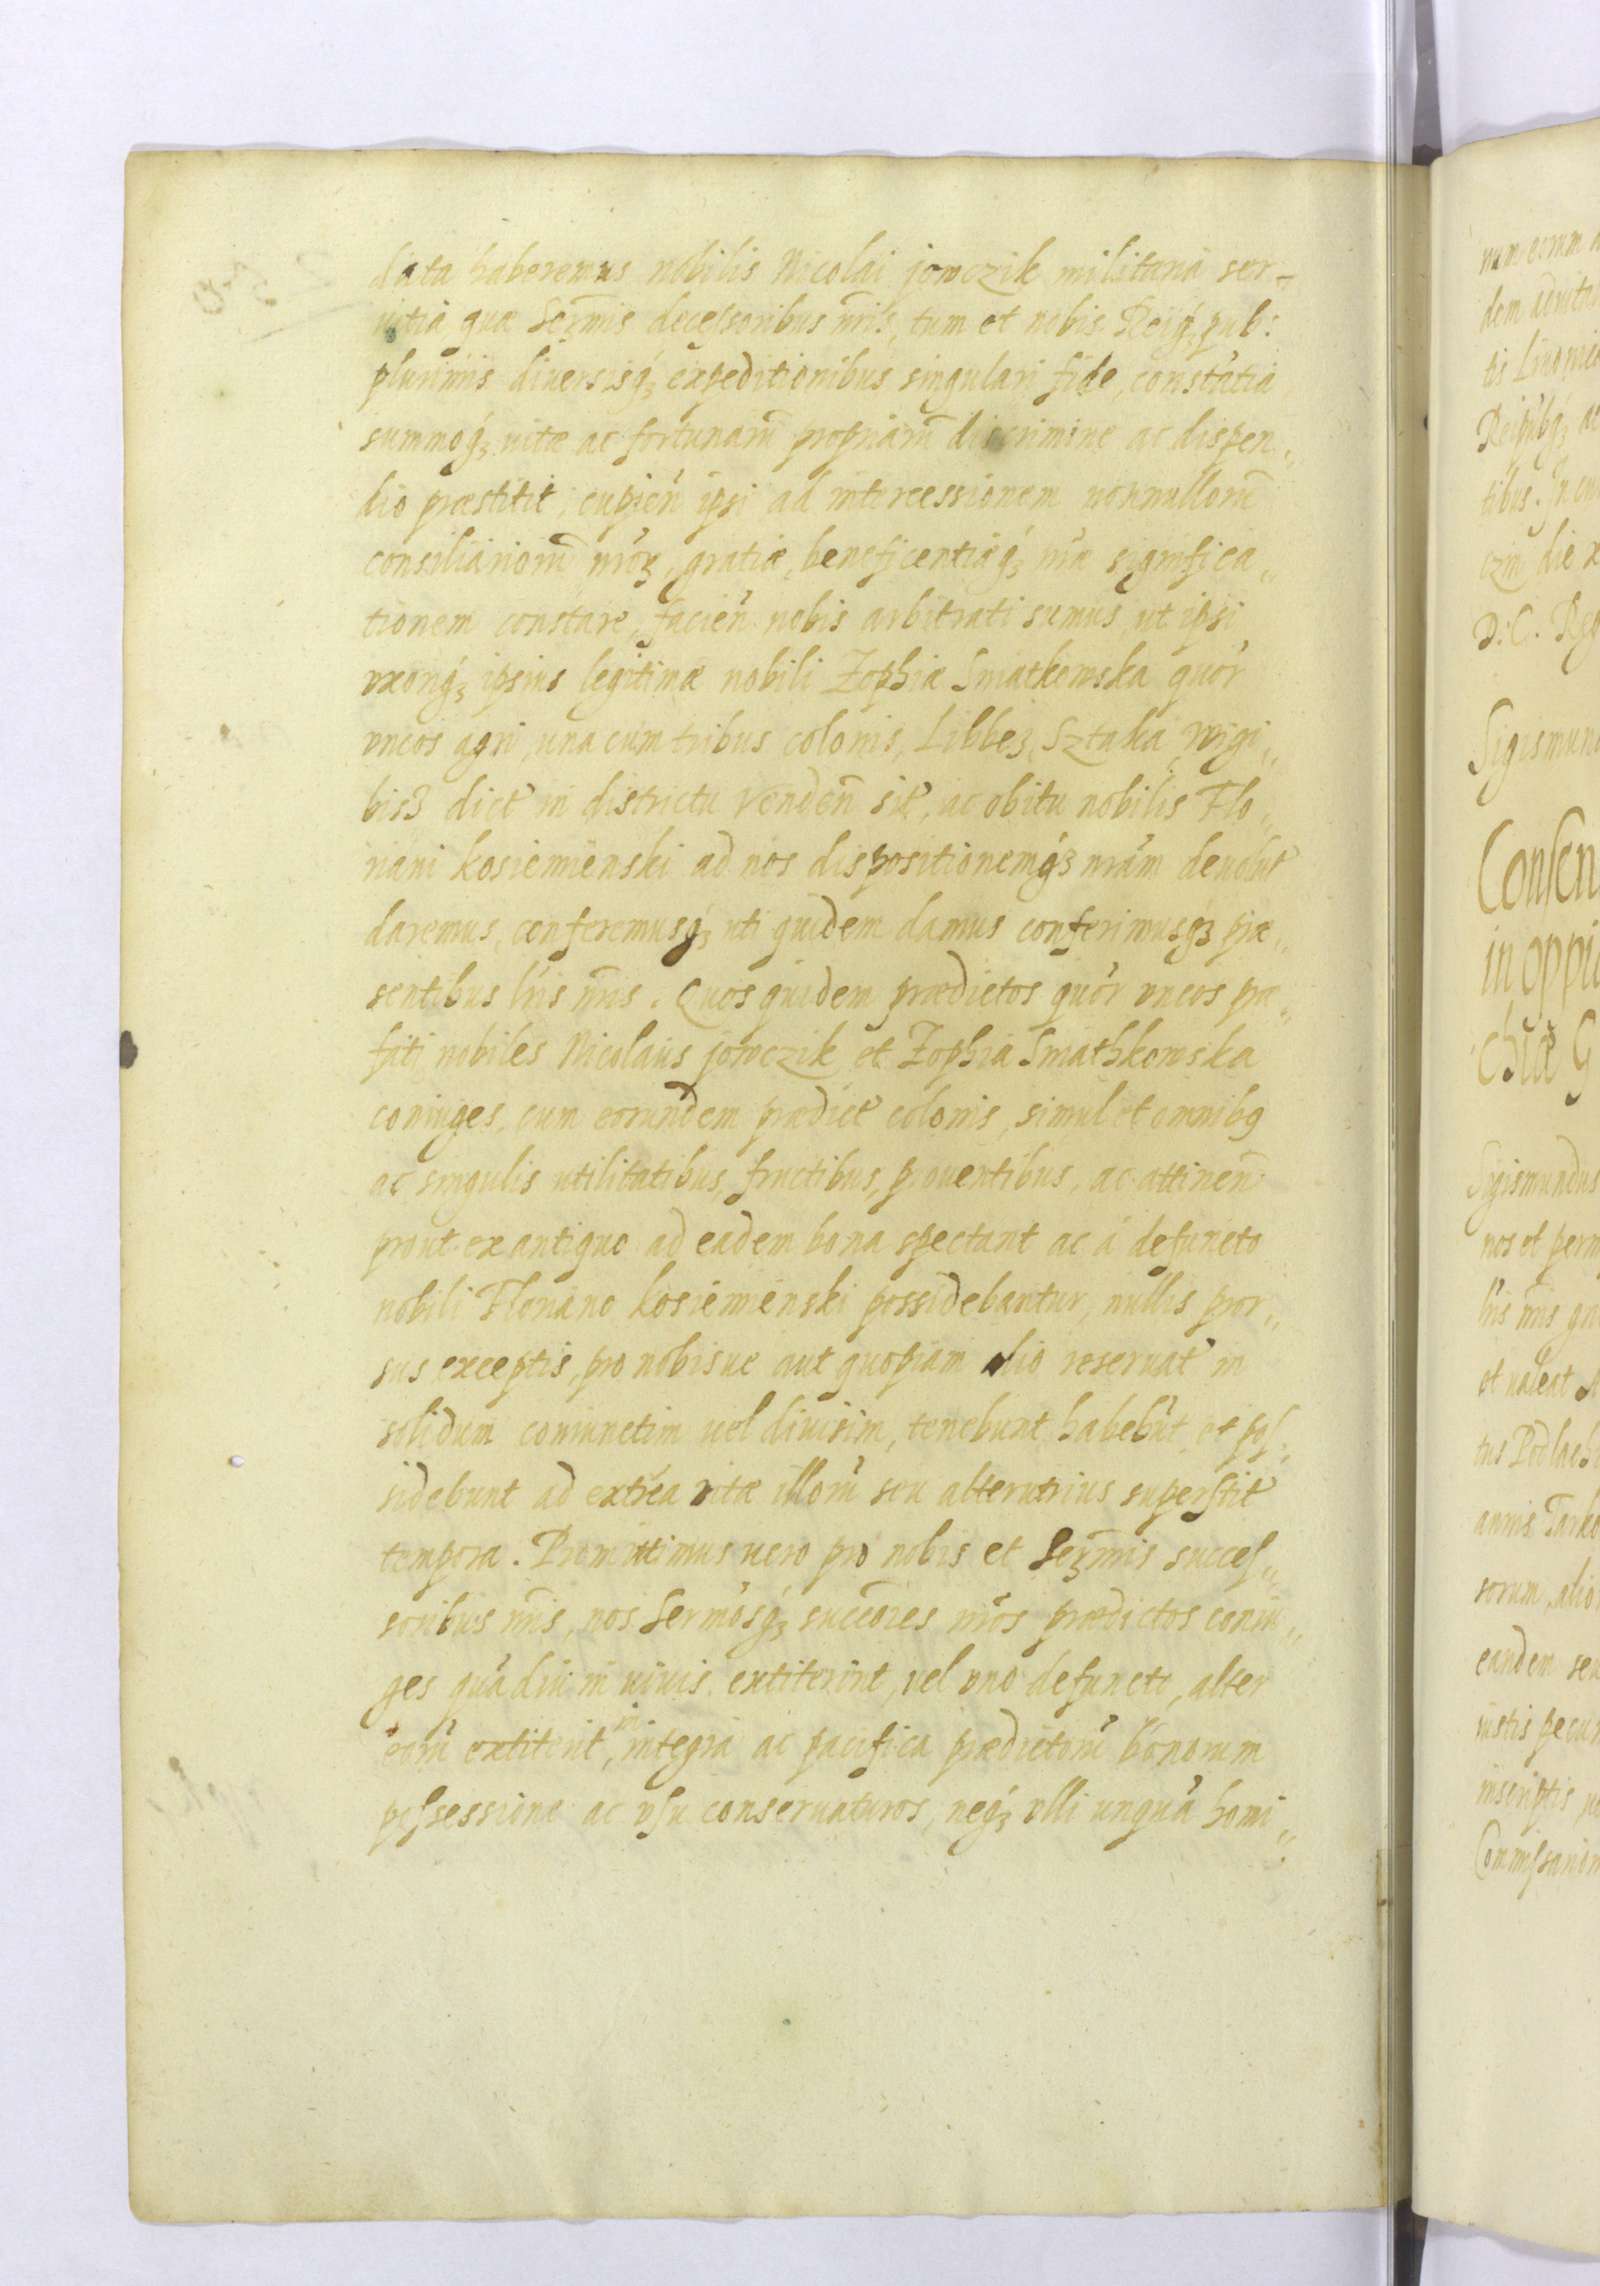 data haberemus nobilis Nicolai jowczik militaria ser-
uitia quæ Sermis decessoribus nris, tum et nobis Reiq; pub:
plurimis diuersisq; expeditionibus singulari fide, constãtia
summoq; uitæ ac fortunarũ propriarũ discrimine ac dispen„
dio præstitit, cupien ipsi ad intercessionem nonnullorũ
consiliariorũ nroȝ, gratiæ, beneficentiæq; nræ significa„
tionem constare, facien nobis arbitrati sumus, ut ipsi
vxoriq; ipsius legitimæ nobili Zophiæ Smatkowska quor
vncos agri una cum tribus colonis, Libbez, Sztaka, Wigi„
bisz dict in districtu Venden sit, ac obitu nobilis Flo„
riani Kosiemienski ad nos dispositionemq; nram deuolut
daremus, conferemusq; uti quidem damus conferimusq; præ„
sentibus lris nris. Quos quidem prædictos quor vncos præ„
fati nobiles Nicolaus jowczik et Zophia Smathkowska
coniuges, cum eorundem prædict colonis, simul et omnibq
ac singulis utilitatibus, fructibus, prouentibus, ac attinen
prout ex antiquo ad eadem bona spectant ac à defuncto
nobili Floriano Kosiemienski possidebantur, nullis pror„
sus exceptis, pro nobisue aut quopiam alio reseruat in
solidum coniunctim uel diuisim, tenebunt habebũt et pos„
sidebunt ad extrea vitæ illorũ seu alterutrius superstit
tempora. Promittimus uero pro nobis et Sermis succes„
soribus nris, nos Sermosq; succores nros prædictos coniu„
ges quãdiu in uiuis extiterint, vel vno defuncto, alter
eorũ extiterit, in integra ac pacifica prædictorũ bonorum
possessione ac vsu conseruaturos, neq; vlli unquã homi„

num eorum
Reipubq; ac
tibus. In cu
die x
D: C. Reg
Sigismund
Consen
in oppid
chiæ G
Sigismundus
nos et perm
lris nris
et ualeat
tus Podlach
annis Tarko
sorum, alio
eandem seu
iustis pecun
inscriptis
Commissariorum